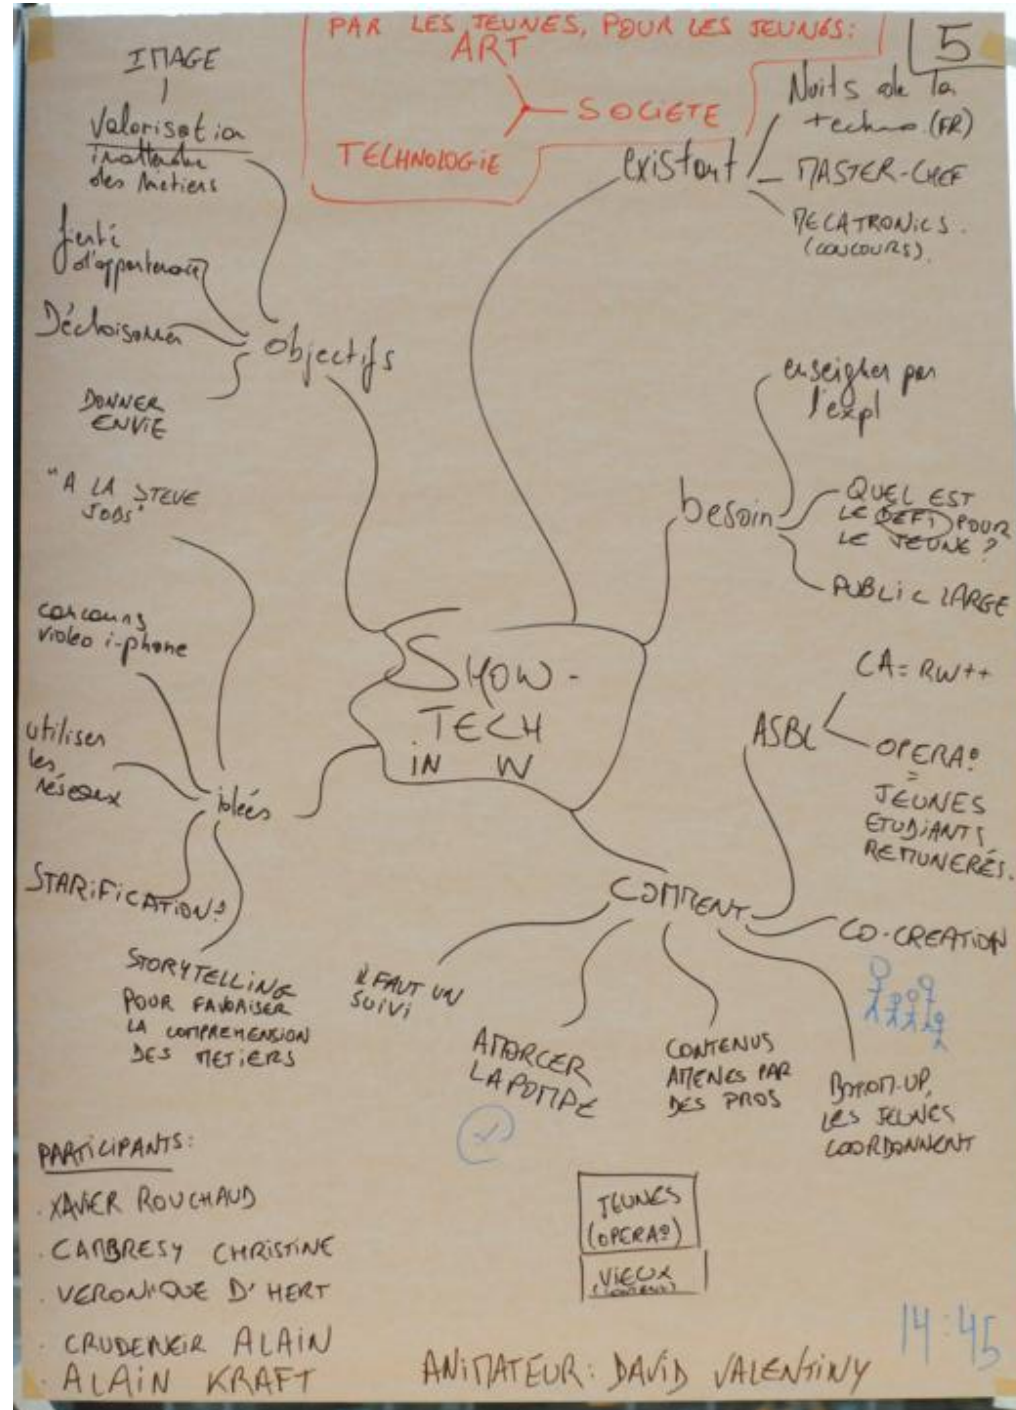 PAR LES JEUNES, POUR LES JEUNES:
ART
SOCIETE
TECHNOLOGIE
5
IMAGE
Valorisation
inattendue
des Métiers
fierté
d'appartenance
Décloisonner
DONNER
ENVIE
objectifs
existant
Nuits de la
techno (FR)
MASTER-CHEF
MECATRONICS.
(CONCOURS).
besoin
enseigner par
l'expl
QUEL EST
LE DÉFI POUR
LE JEUNE ?
PUBLIC LARGE
SHOW-
TECH
IN W
"A LA STEVE
JOBS"
concours
video i-phone
utiliser
les
réseaux
idées
STARIFICATION?
STORYTELLING
POUR FAVORISER
LA COMPREHENSION
DES METIERS
COMMENT
ASBL
CA = RW++
OPERAº
=
JEUNES
ETUDIANTS
REMUNERÉS.
CO-CREATION
BOTTOM-UP,
LES JEUNES
COORDONNENT
CONTENUS
AMENES PAR
DES PROS
AMORCER
LA POMPE
IL FAUT UN
SUIVI
JEUNES
(OPERAº)
VIEUX
PARTICIPANTS:
. XAVIER ROUCHAUD
. CAMBRESY CHRISTINE
. VERONIQUE D'HERT
. ALAIN
. ALAIN KRAFT
ANIMATEUR: DAVID VALENTINY
14:45